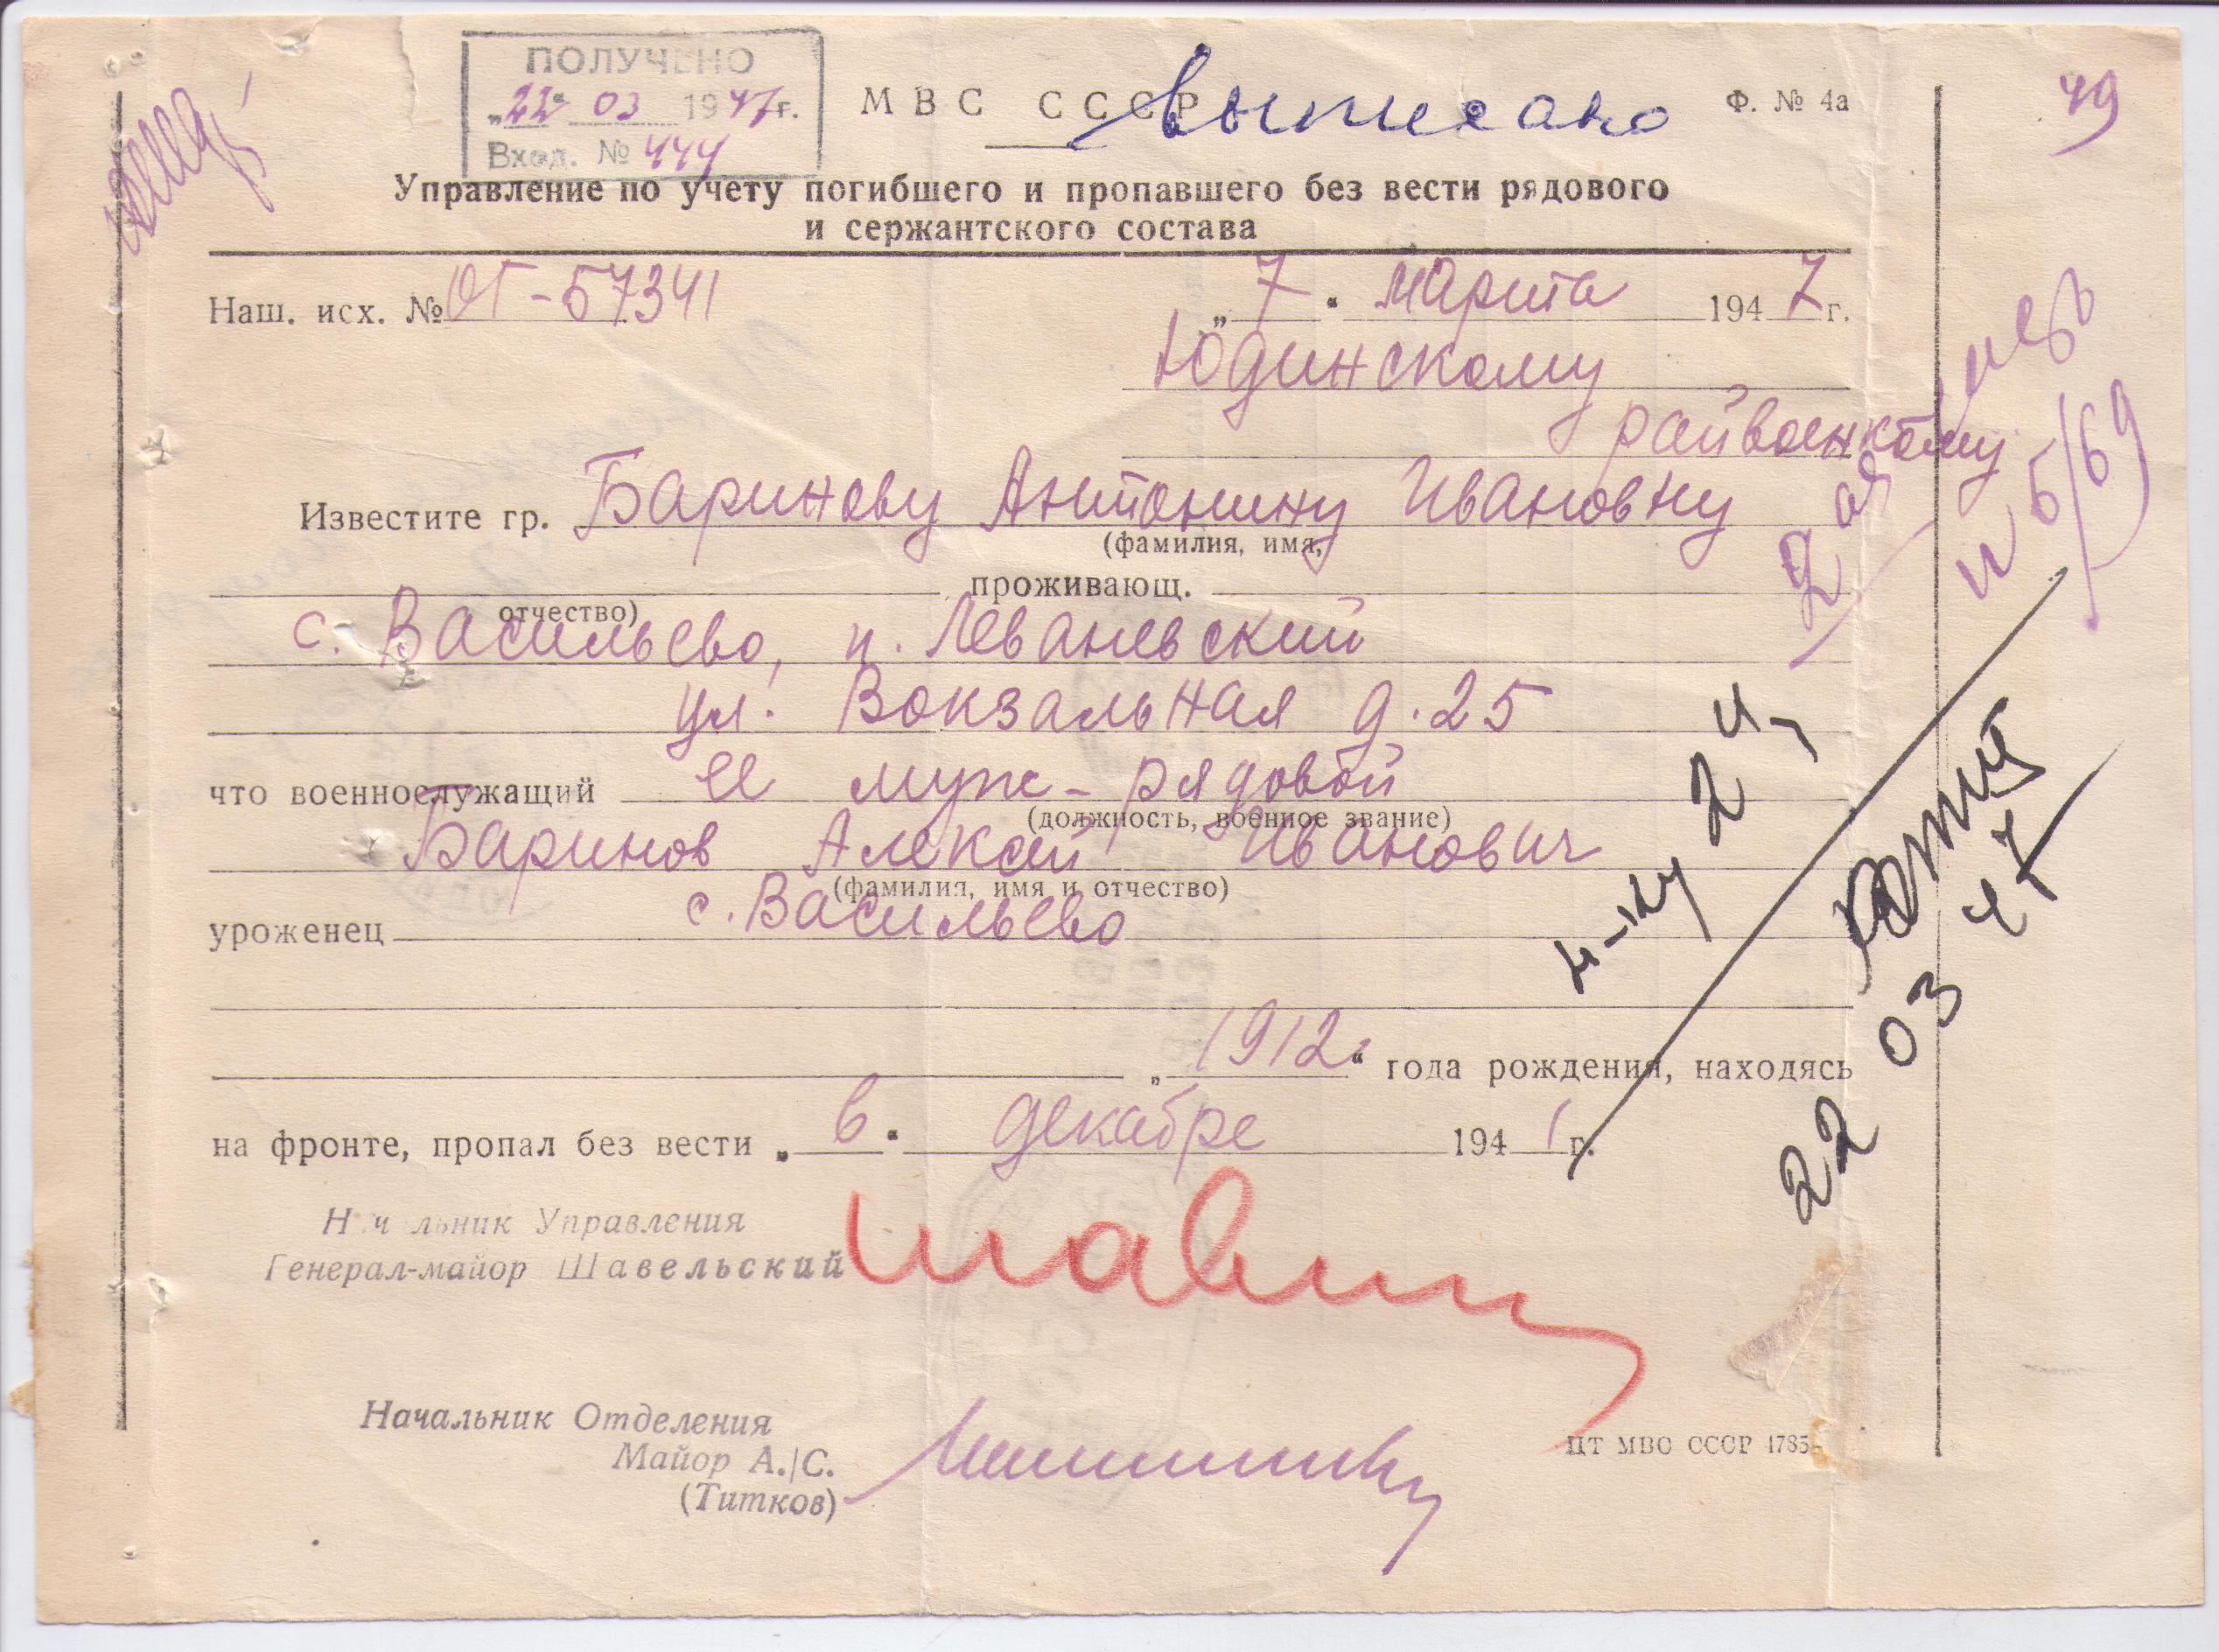 ПОЛУЧЕНО
„22“ 03 1947г.
Вход. № 444
МВС СССР
Выписано
Ф. № 4а
49
Управление по учету погибшего и пропавшего без вести рядового
и сержантского состава
Наш. исх. № ОГ-57341
„7“ марта 1947г.
Юдинскому
райвоенкому
Известите гр. Баринову Антонину Ивановну
(фамилия, имя,
проживающ.
отчество)
с. Васильево, п. Леваневский
ул. Вокзальная д. 25
что военнослужащий ее муж - рядовой
(должность, военное звание)
Баринов Алексей Иванович
(фамилия, имя и отчество)
уроженец с. Васильево
„1912“ года рождения, находясь
на фронте, пропал без вести „в“ декабре 1941г.
Начальник Управления
Генерал-майор Шавельский
Начальник Отделения
Майор А./С.
(Титков)
ЦТ МВО СССР 1785
2 ая
и 5/69
24
22 03 47